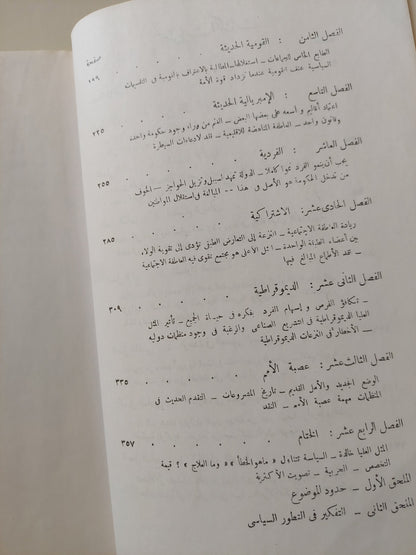 الفصل الثامن : القومية الحديثة
صفحة
الطابع الخاص للجماعات ــ استقلالها ــ المطالبة بالاعتراف بالقومية في التقسيمات
السياسية عنف القومية عندما تزداد قوة الأمة
١٩٩
الفصل التاسع : الإمبريالية الحديثة . . . . ٢٣٥
اعتماد أقاليم واسعة على بعضها البعض ــ الغنم من وراء وجود حكومة واحدة
وقانون واحد ــ العاطفة المناهضة للإقليمية ــ نقد لادعاءات السيطرة
الفصل العاشر : الفردية . . . . . ٢٥٥
يجب أن ينمو الفرد نموا كاملا ــ الدولة تمهد السبيل وتزيل الحواجز ــ الخوف
من تدخل الحكومة هو الأصل في هذا ــ المبالغة في استقلال المواطنين
الفصل الحادى عشر : الاشتراكية . . . . ٢٨٥
زيادة العاطفة الاجتماعية ــ النزعة إلى التعارض الطبقى تؤدى إلى تقوية الولاء
بين أعضاء الطبقة الواحدة ــ المثل الأعلى هو مجتمع تقوى فيه العاطفة الاجتماعية
ــ نقد الأطماع المبالغ فيها
الفصل الثانى عشر : الديموقراطية . . . . ٣٠٩
ــ تكافؤ الفرص وإسهام الفرد بفكره في حياة الجميع ــ تأثير المثل
العليا الديموقراطية في التشريع الصناعى والرغبة في وجود منظمات دولية
ــ الأخطار في النزعات الديموقراطية
الفصل الثالث عشر : عصبة الأمم . . . . ٣٣٥
الوضع الجديد والأمل القديم ــ تاريخ المشروعات ــ التقدم الحديث في
المنظمات مهمة عصبة الأمم ــ النقد
الفصل الرابع عشر : الختام . . . . . ٣٥٧
المثل العليا خالدة ــ السياسة تتناول « ماهو الخطأ » « وما العلاج » ؟ قيمة
التخصص ــ الحزبية ــ تصويت الأكثرية
الملحق الأول ــ حدود الموضوع
الملحق الثانى ــ التفكير في التطور السياسى